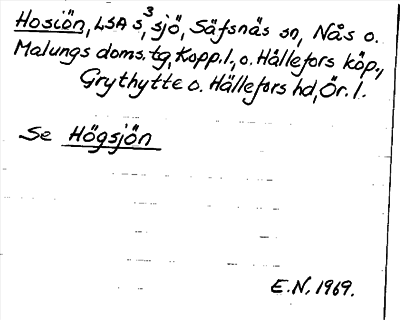 Hosiön, LSA s³, sjö, Säfsnäs sn, Nås o.
Malungs doms.tg, Kopp.l., o. Hällefors köp.,
Grythytte o. Hällefors hd, Ör. l.
Se Högsjön
E.N. 1969.